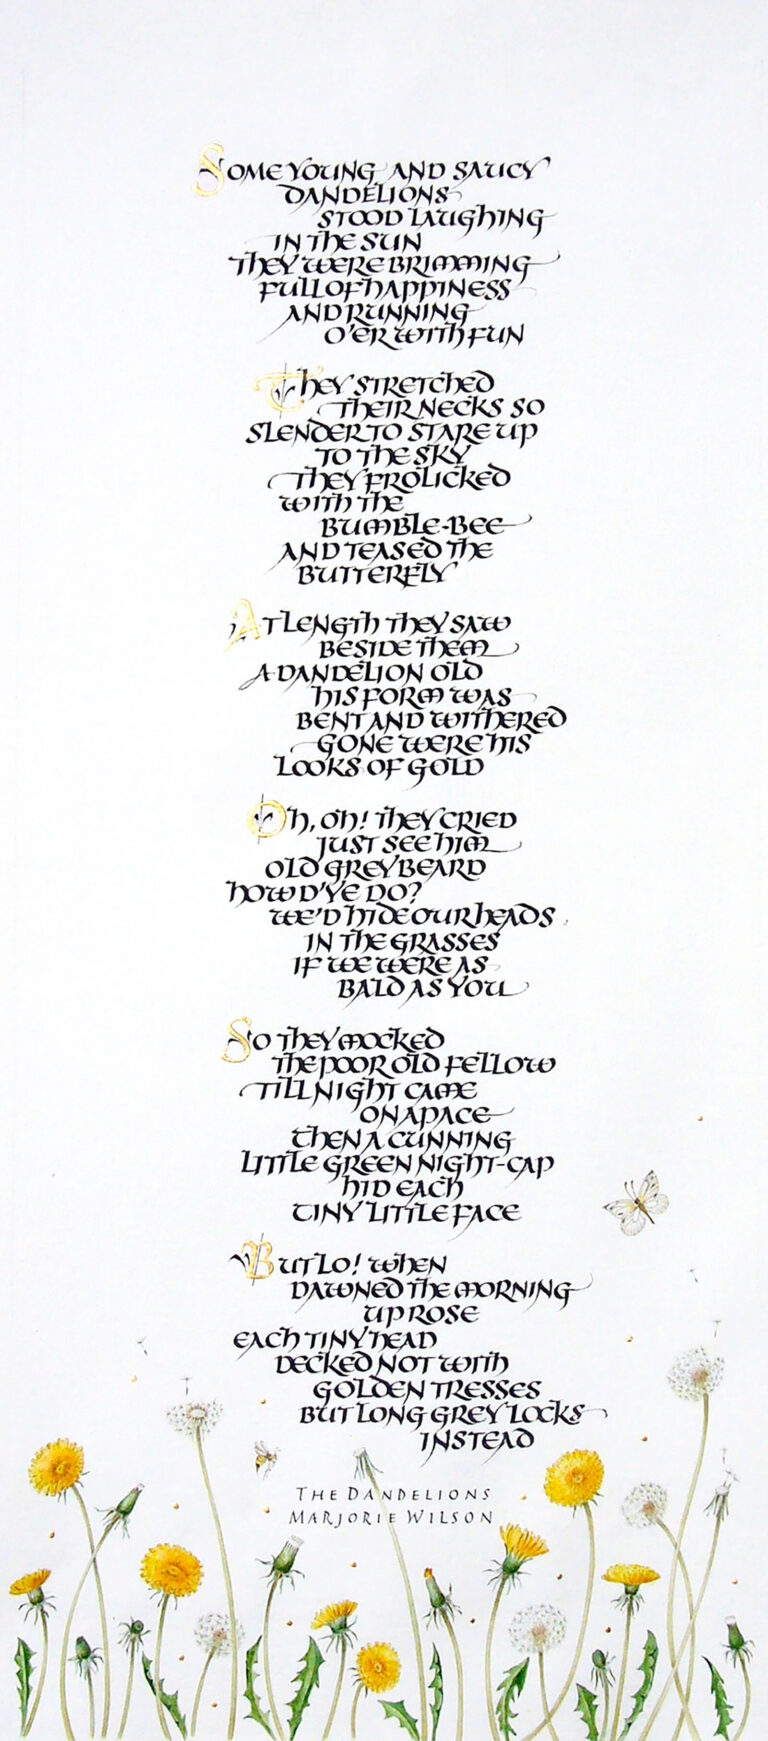 SOME YOUNG AND SAUCY
DANDELIONS
STOOD LAUGHING
IN THE SUN
THEY WERE BRIMMING
FULL OF HAPPINESS
AND RUNNING
O'ER WITH FUN
THEY STRETCHED
THEIR NECKS SO
SLENDER TO STARE UP
TO THE SKY
THEY FROLICKED
WITH THE
BUMBLE-BEE
AND TEASED THE
BUTTERFLY
AT LENGTH THEY SAW
BESIDE THEM
A DANDELION OLD
HIS FORM WAS
BENT AND WITHERED
GONE WERE HIS
LOOKS OF GOLD
OH, OH! THEY CRIED
JUST SEE HIM
OLD GREYBEARD
HOW D'YE DO?
WE'D HIDE OUR HEADS
IN THE GRASSES
IF WE WERE AS
BALD AS YOU
SO THEY MOCKED
THE POOR OLD FELLOW
TILL NIGHT CAME
ON APACE
THEN A CUNNING
LITTLE GREEN NIGHT-CAP
HID EACH
TINY LITTLE FACE
BUT LO! WHEN
DAWNED THE MORNING
UP ROSE
EACH TINY HEAD
DECKED NOT WITH
GOLDEN TRESSES
BUT LONG GREY LOCKS
INSTEAD
THE DANDELIONS
MARJORIE WILSON